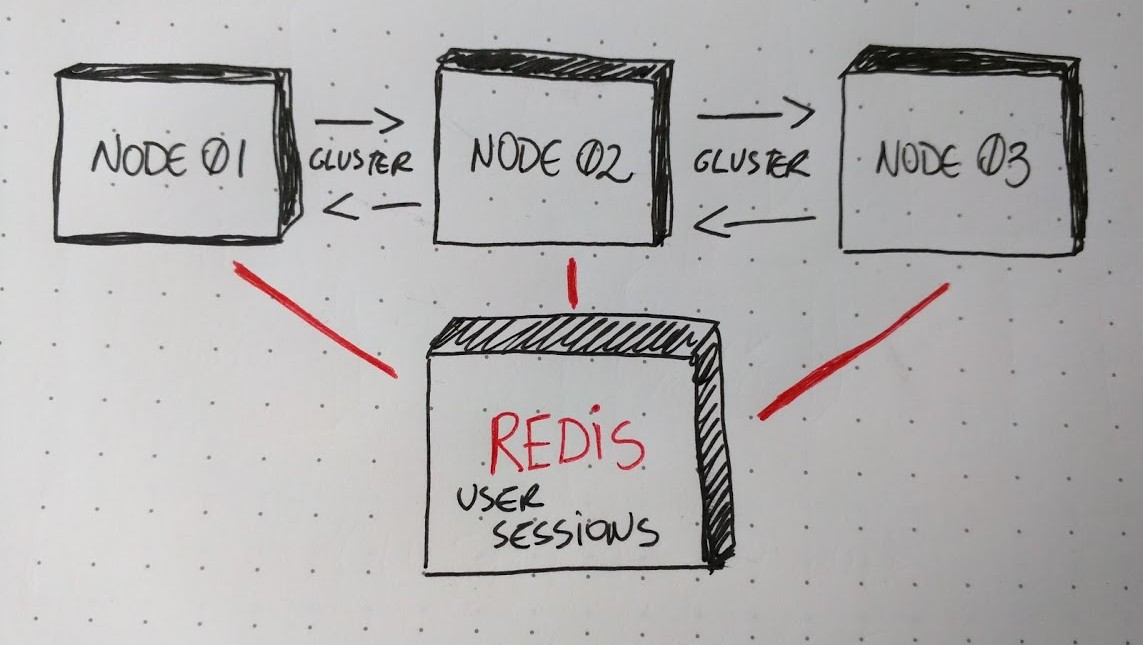 NODE 01
GLUSTER
NODE 02
GLUSTER
NODE 03
REDIS
USER
SESSIONS